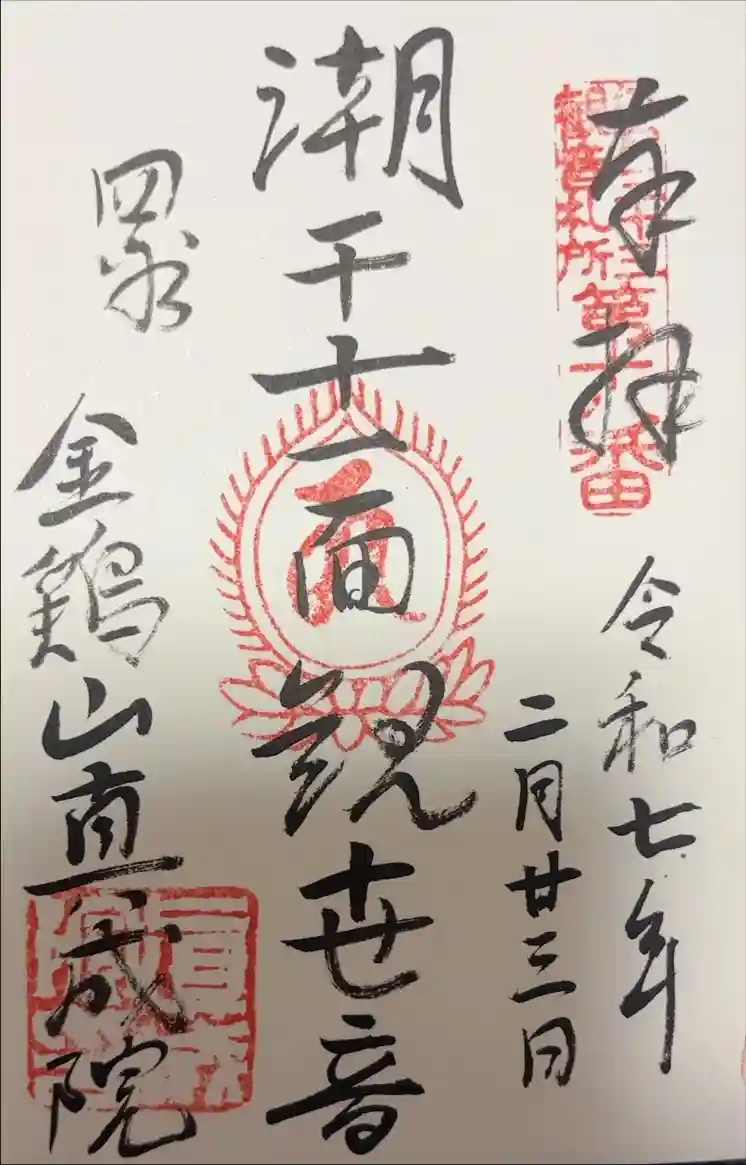 奉拝
観音札所第十八番
令和七年
二月廿三日
潮干十一面観世音
四谷
金鶏山真成院